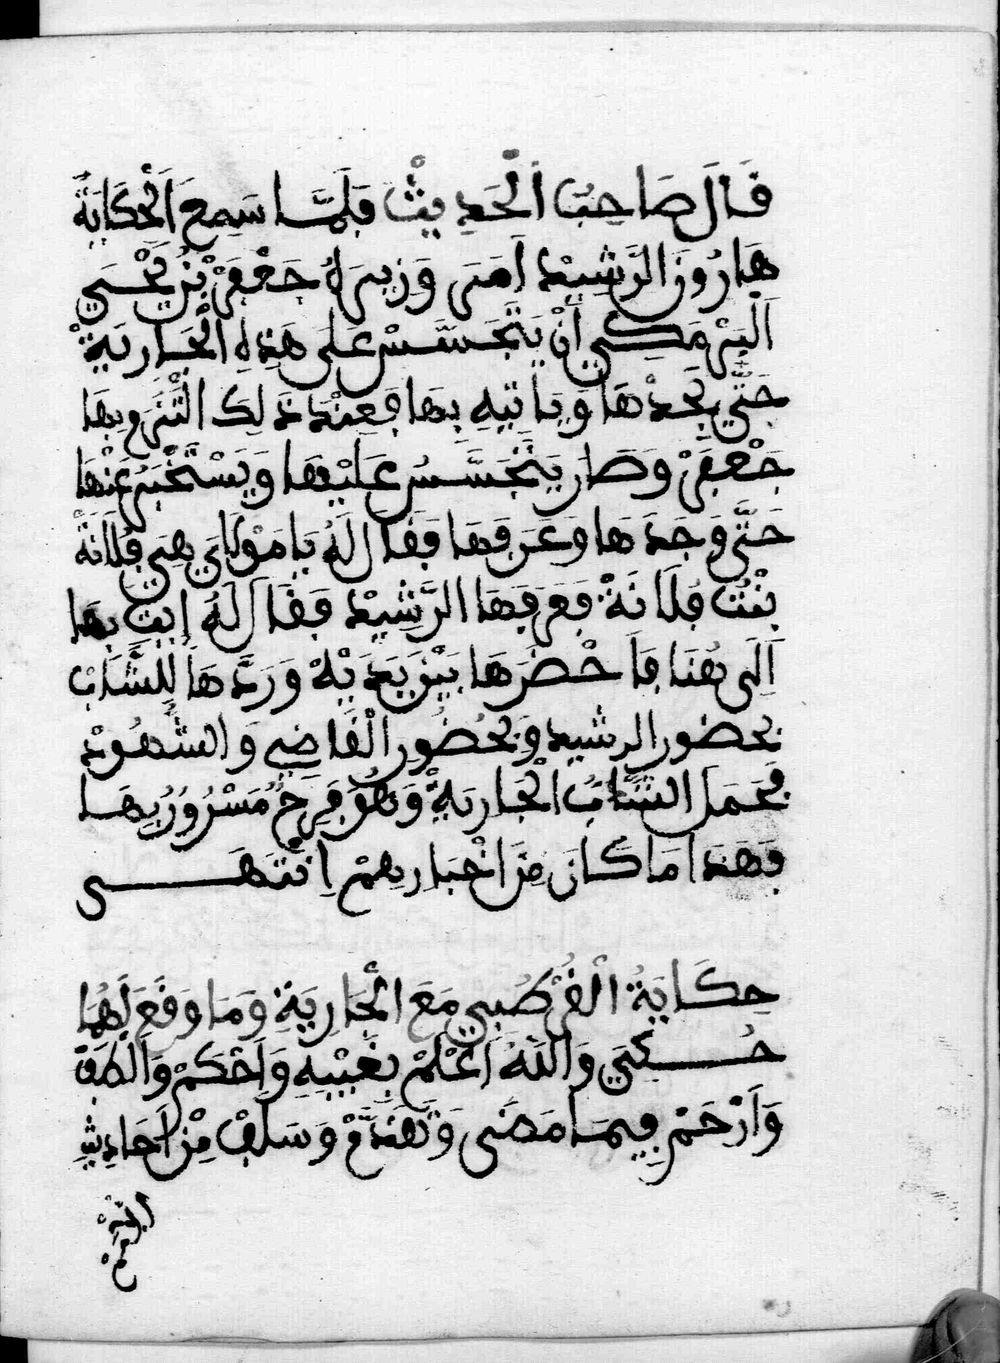 قَالَ صَاحِبُ اَلْحَدِيثْ فَلَمَّا سَمِعَ اَلْحِكَايَةَ
هَارُونَ الرَّشِيدْ اَمَرَ وَزِيرَهُ جَعْفَرْ بْنُ يَحْيَى
اَلْبَرْمَكِي أَنْ يَتَجَسَّسْ عَلَى هَذِهِ الْجَارِيَةْ
حَتَّى يَجِدْهَا وَيَاتِيهِ بِهَا فَعِنْدَ ذَلِكَ الْتَزَم بِهَا
جَعْفَرْ وَصَارَ يَتَجَسَّسُ عَلَيْهَا وَيَسْتَخْبَرُ عَنْهَا
حَتَّى وَجَدَهَا وَعَرَفَهَا فَقَالَ لَهُ يَا مَوْلَايَ هِيَ فُلَانَةْ
بِنْتُ فُلَانَةْ فَعَرَفَهَا الرَّشِيدْ فَقَالَ لَهُ إيتِ بِهَا
اِلَى هُنَا فَاَحْضَرَهَا بَيْنَ يَدَيْهْ وَرَدَّهَا لِلشَّابْ
بحضور الرشيد وَبِحُضُورِ الْقَاضِي وَالشُّهُودْ
فَحَمَلَ الشَّابُ الْجَارِيَةَ وَهُوَ فَرِحٌ مَسْرُورٌ بِهَا
فَهَذَا مَا كَانَ مِنَ اَخْبَارِهِمْ انْتَهَى
حِكَايَةُ الْقُرْطُبِي مَعَ الْجَارِيَةِ وَمَا وَقَعَ لَهُمَا
حُكِيَ وَاللَّهُ اَعْلَمْ بِغَيْبِهِ وَاَحْكَمْ وَاَلْطَفْ
وَاَرْحَمْ فِيمَا مَضَى وَتَقَدَّمْ وَسَلَفْ مِنْ اَحَادِيثِ